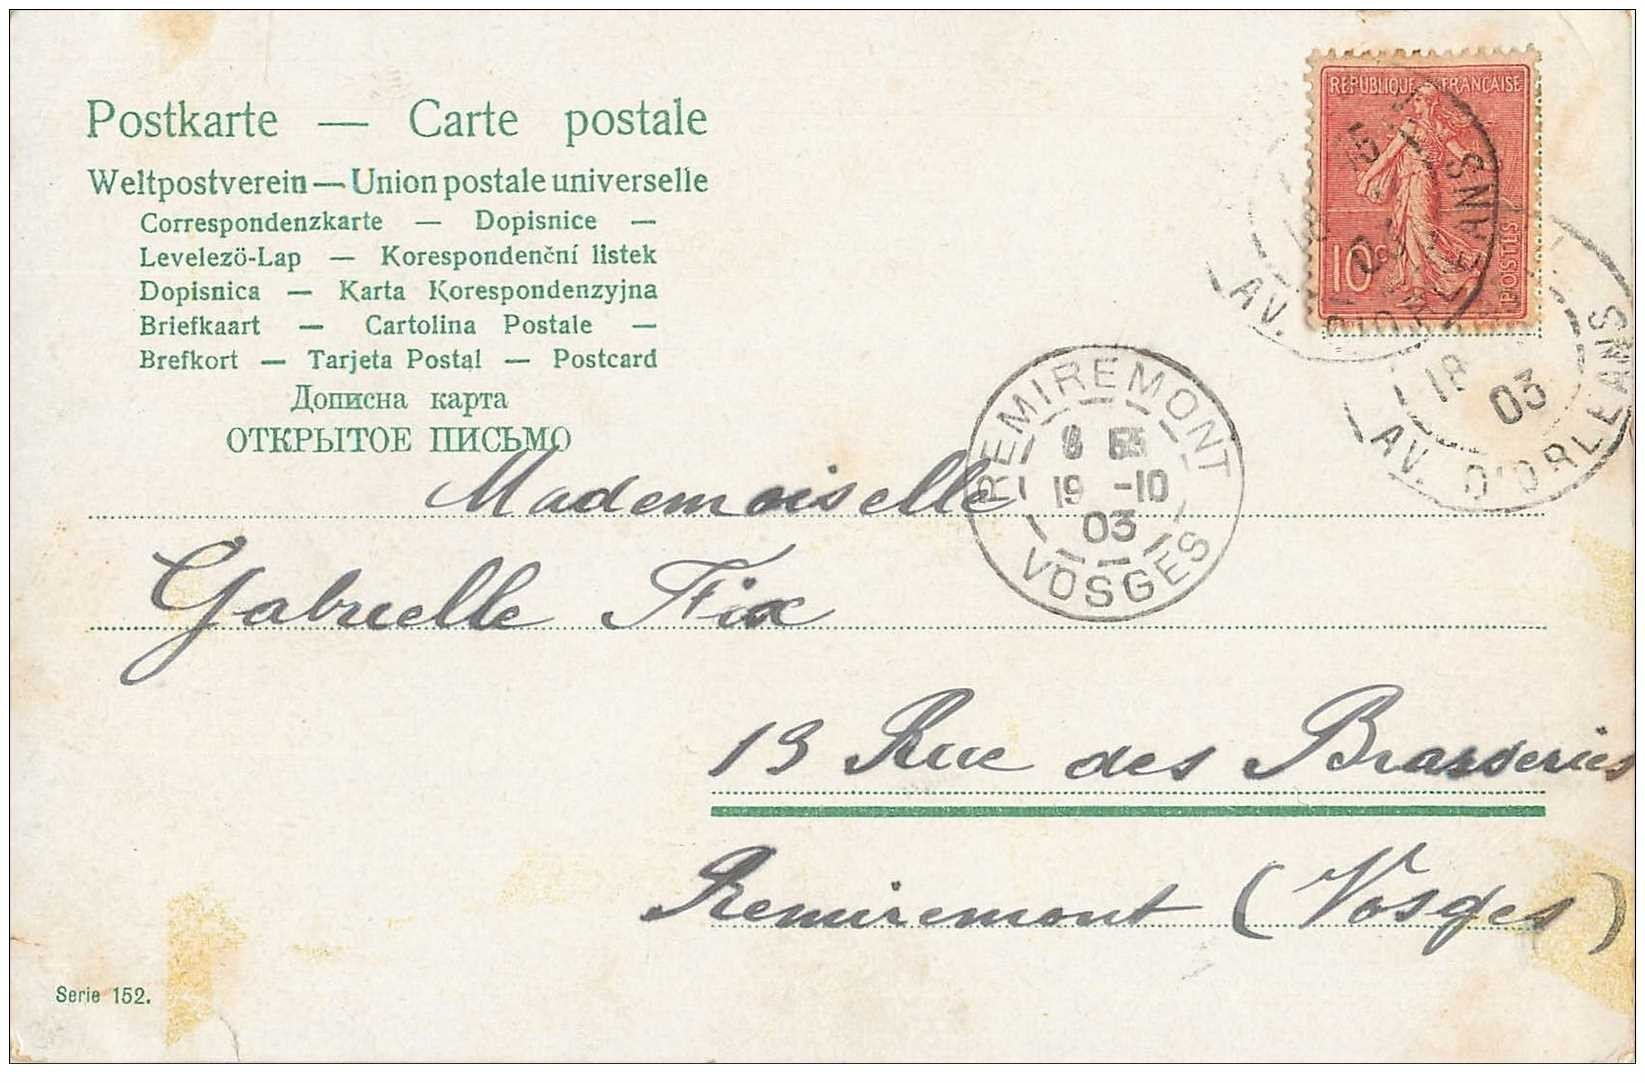 Postkarte — Carte postale
Weltpostverein — Union postale universelle
Correspondenzkarte — Dopisnice —
Levelezö-Lap — Korespondenční listek
Dopisnica — Karta Korespondenzyjna
Briefkaart — Cartolina Postale —
Brefkort — Tarjeta Postal — Postcard
Дописна карта
ОТКРЫТОЕ ПИСЬМО
REPUBLIQUE FRANÇAISE
10c
POSTES
AV. D'ORLEANS
18
03
AV. D'ORLEANS
REMIREMONT
19 -10
03
VOSGES
Mademoiselle
Gabrielle Fix
13 Rue des Brasseries
Remiremont (Vosges)
Serie 152.